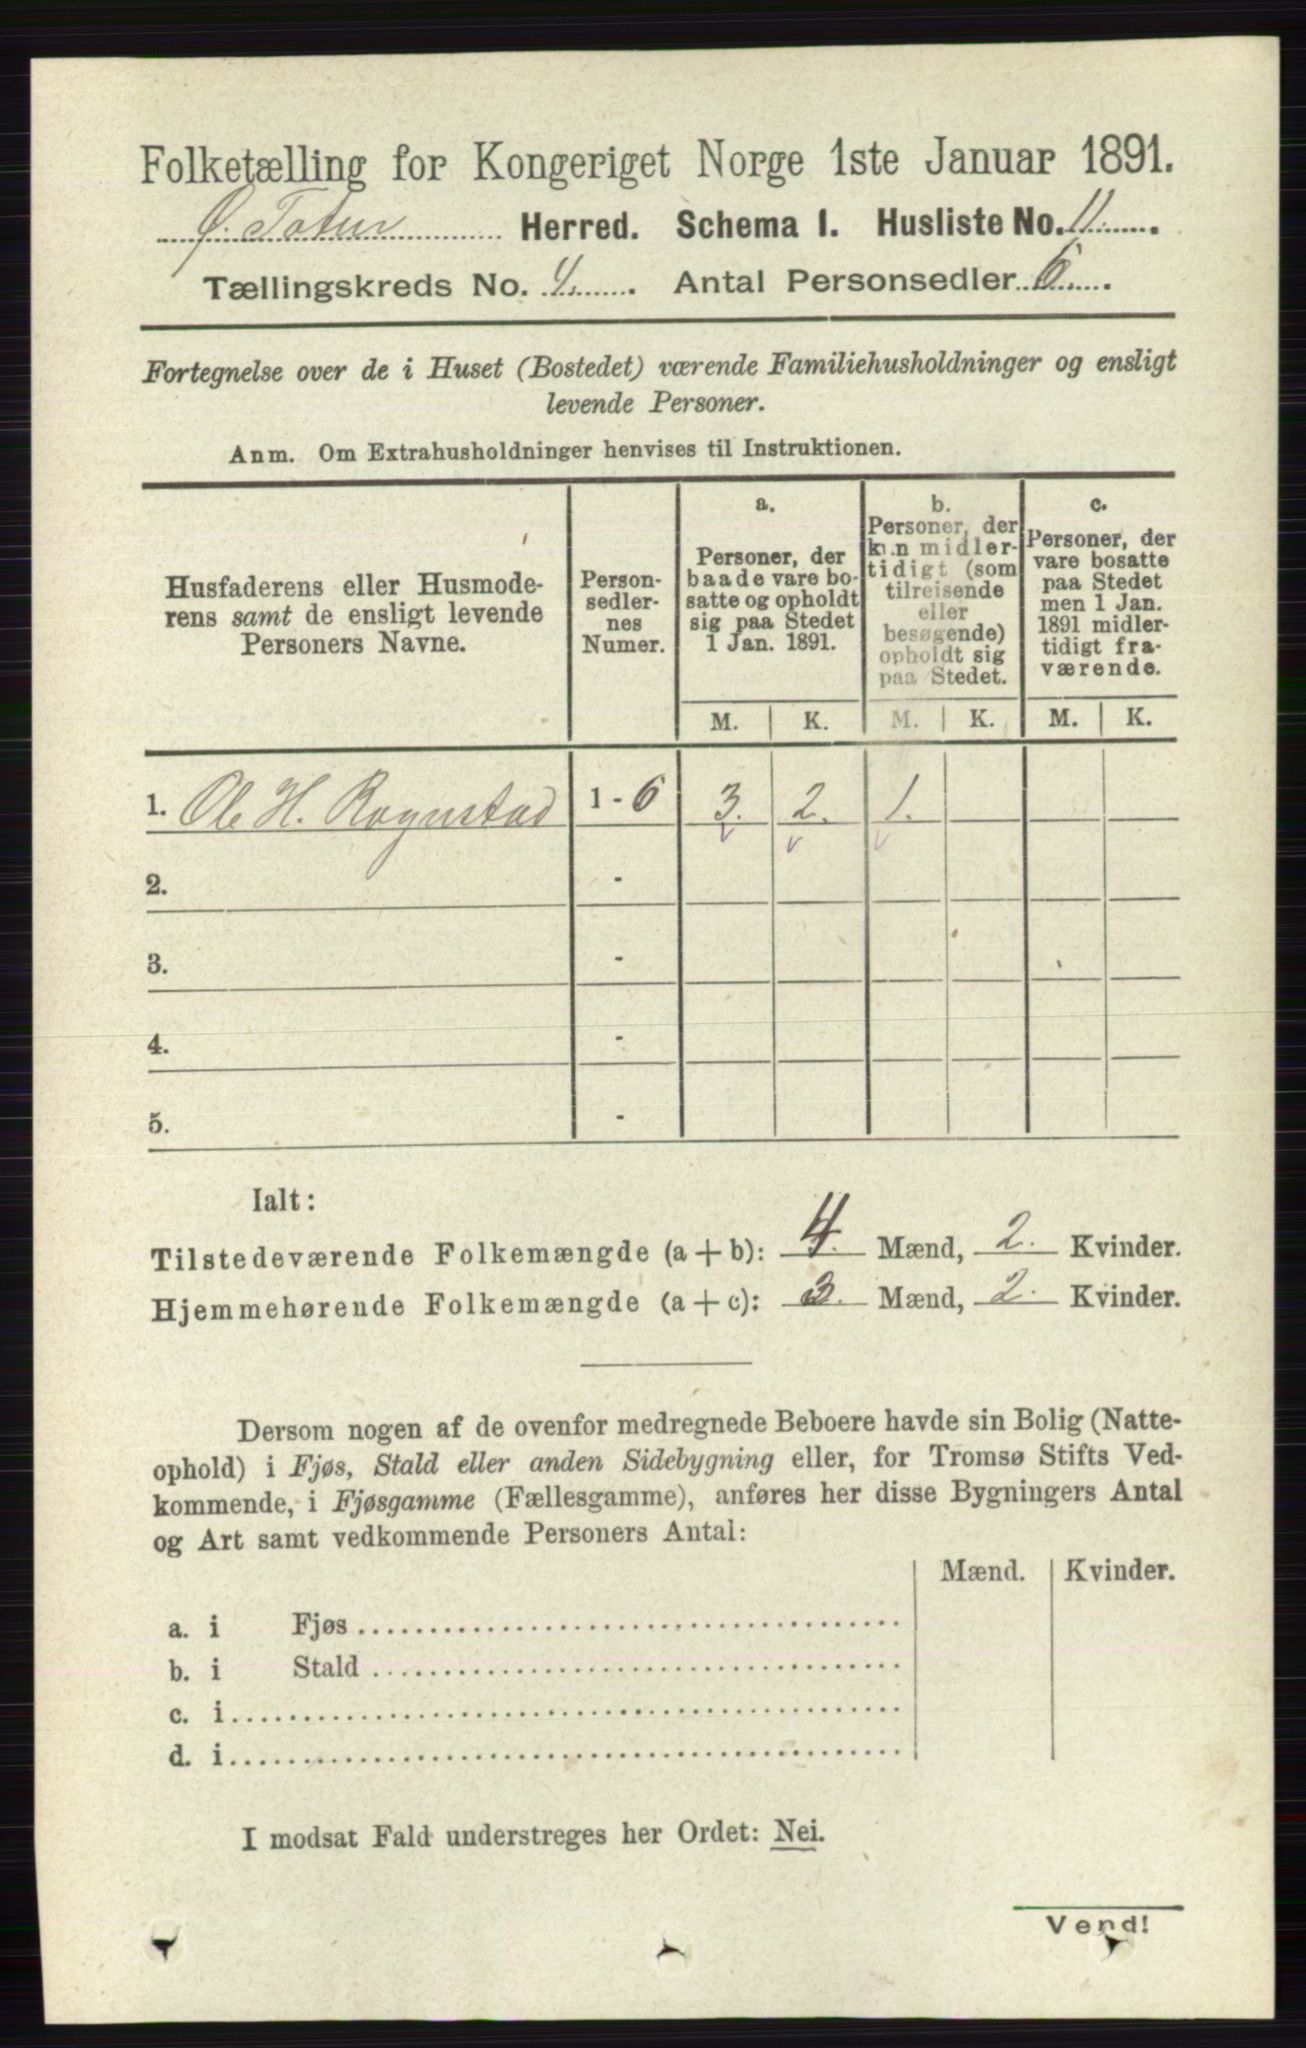 Folketælling for Kongeriget Norge 1ste Januar 1891.
Ø. Toten Herred. Schema I. Husliste No. 11.
Tællingskreds No. 4. Antal Personsedler 6.
Fortegnelse over de i Huset (Bostedet) værende Familiehusholdninger og ensligt
levende Personer.
Anm. Om Extrahusholdninger henvises til Instruktionen.
Husfaderens eller Husmode-
rens samt de ensligt levende
Personers Navne.
Person-
sedler-
nes
Numer.
a.
Personer, der
baade vare bo-
satte og opholdt
sig paa Stedet
1 Jan. 1891.
b.
Personer, der
kun midler-
tidigt (som
tilreisende
eller
besøgende)
opholdt sig
paa Stedet.
c.
Personer, der
vare bosatte
paa Stedet
men 1 Jan.
1891 midler-
tidigt fra-
værende.
M. K. M. K. M. K.
1. Ole H. Rognstad 1 - 6 3. 2. 1.
2. -
3. -
4. -
5. -
Ialt:
Tilstedeværende Folkemængde (a + b): 4. Mænd, 2. Kvinder.
Hjemmehørende Folkemængde (a + c): 3. Mænd, 2. Kvinder.
Dersom nogen af de ovenfor medregnede Beboere havde sin Bolig (Natte-
ophold) i Fjøs, Stald eller anden Sidebygning eller, for Tromsø Stifts Ved-
kommende, i Fjøsgamme (Fællesgamme), anføres her disse Bygningers Antal
og Art samt vedkommende Personers Antal:
Mænd. Kvinder.
a. i Fjøs
b. i Stald
c. i
d. i
I modsat Fald understreges her Ordet: Nei.
Vend!